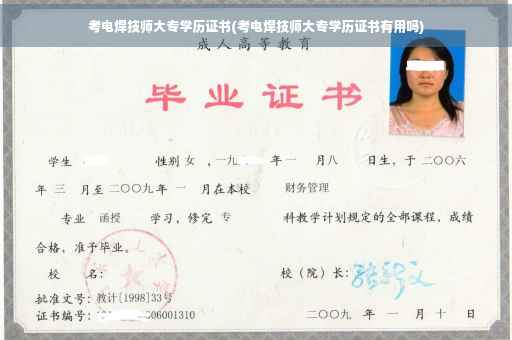 考电焊技师大专学历证书(考电焊技师大专学历证书有用吗)
成人高等教育
毕业证书
学生 性别 女 ，一九 年 一 月 八 日生，于二〇〇六
年 三 月至二〇〇九年 一 月在本校 财务管理
专业 函授 学习，修完 专 科教学计划规定的全部课程，成绩
合格，准予毕业。
校 名： 校（院）长：
批准文号：教计[1998]33号
证书编号： 06001310 二〇〇九 年 一 月 十 日